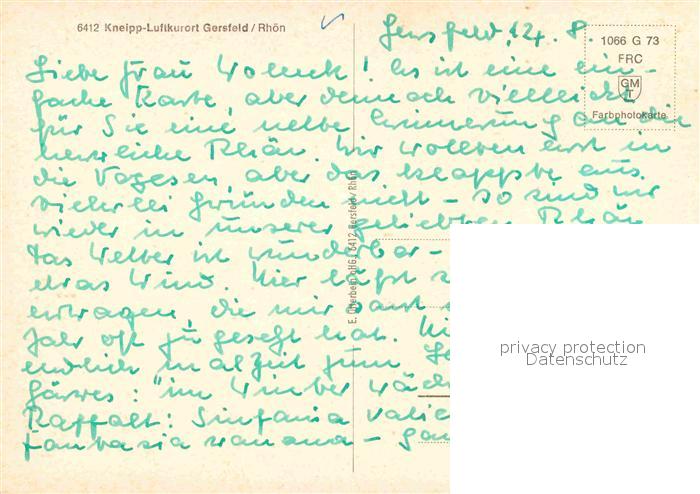 6412 Kneipp-Luftkurort Gersfeld / Rhön
Gersfeld, 24. 8.
1066 G 73
FRC
GM
T
Farbphotokarte
Liebe Frau! Es ist eine ein-
fache Karte, aber dennoch vielleicht
für Sie eine nette Erinnerung an die
herrliche Rhön. Wir wollten erst in
die Vogesen, aber das klappte aus
vielerlei Gründen nicht - so sind wir
wieder in unserer geliebten Rhön
Das Wetter ist wunderbar -
etwas Wind. Hier läßt
ertragen, die mir sonst
Jahr oft zugesetzt hat.
endlich mal Zeit zum
Görres: "im Winter wäch
Raffalt: Sinfonia Vatic
Fantasia Romana -
E. Otterbein oHG., 6412 Gersfeld / Rhön
privacy protection
Datenschutz